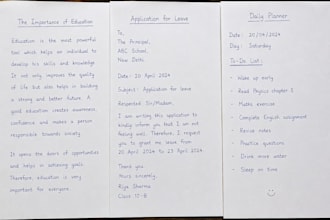 The Importance of Education
Education is the most powerful
tool which helps an individual to
develop his skills and knowledge.
It not only improves the quality
of life but also helps in building
a strong and better future. A
good education creates awareness,
confidence and makes a person
responsible towards society.
It opens the doors of opportunities
and helps in achieving goals.
Therefore, education is very
important for everyone.
Application for Leave
To,
The Principal,
ABC School,
New Delhi.
Date: 20 April 2024
Subject: Application for leave
Respected Sir/Madam,
I am writing this application to
kindly inform you that I am not
feeling well. Therefore, I request
you to grant me leave from
20 April 2024 to 23 April 2024.
Thank you.
Yours sincerely,
Riya Sharma
Class 10-B
Daily Planner
Date: 20/04/2024
Day: Saturday
To-Do List:
- Wake up early
- Read Physics chapter 5
- Maths exercise
- Complete English assignment
- Revise notes
- Practice questions
- Drink more water
- Sleep on time